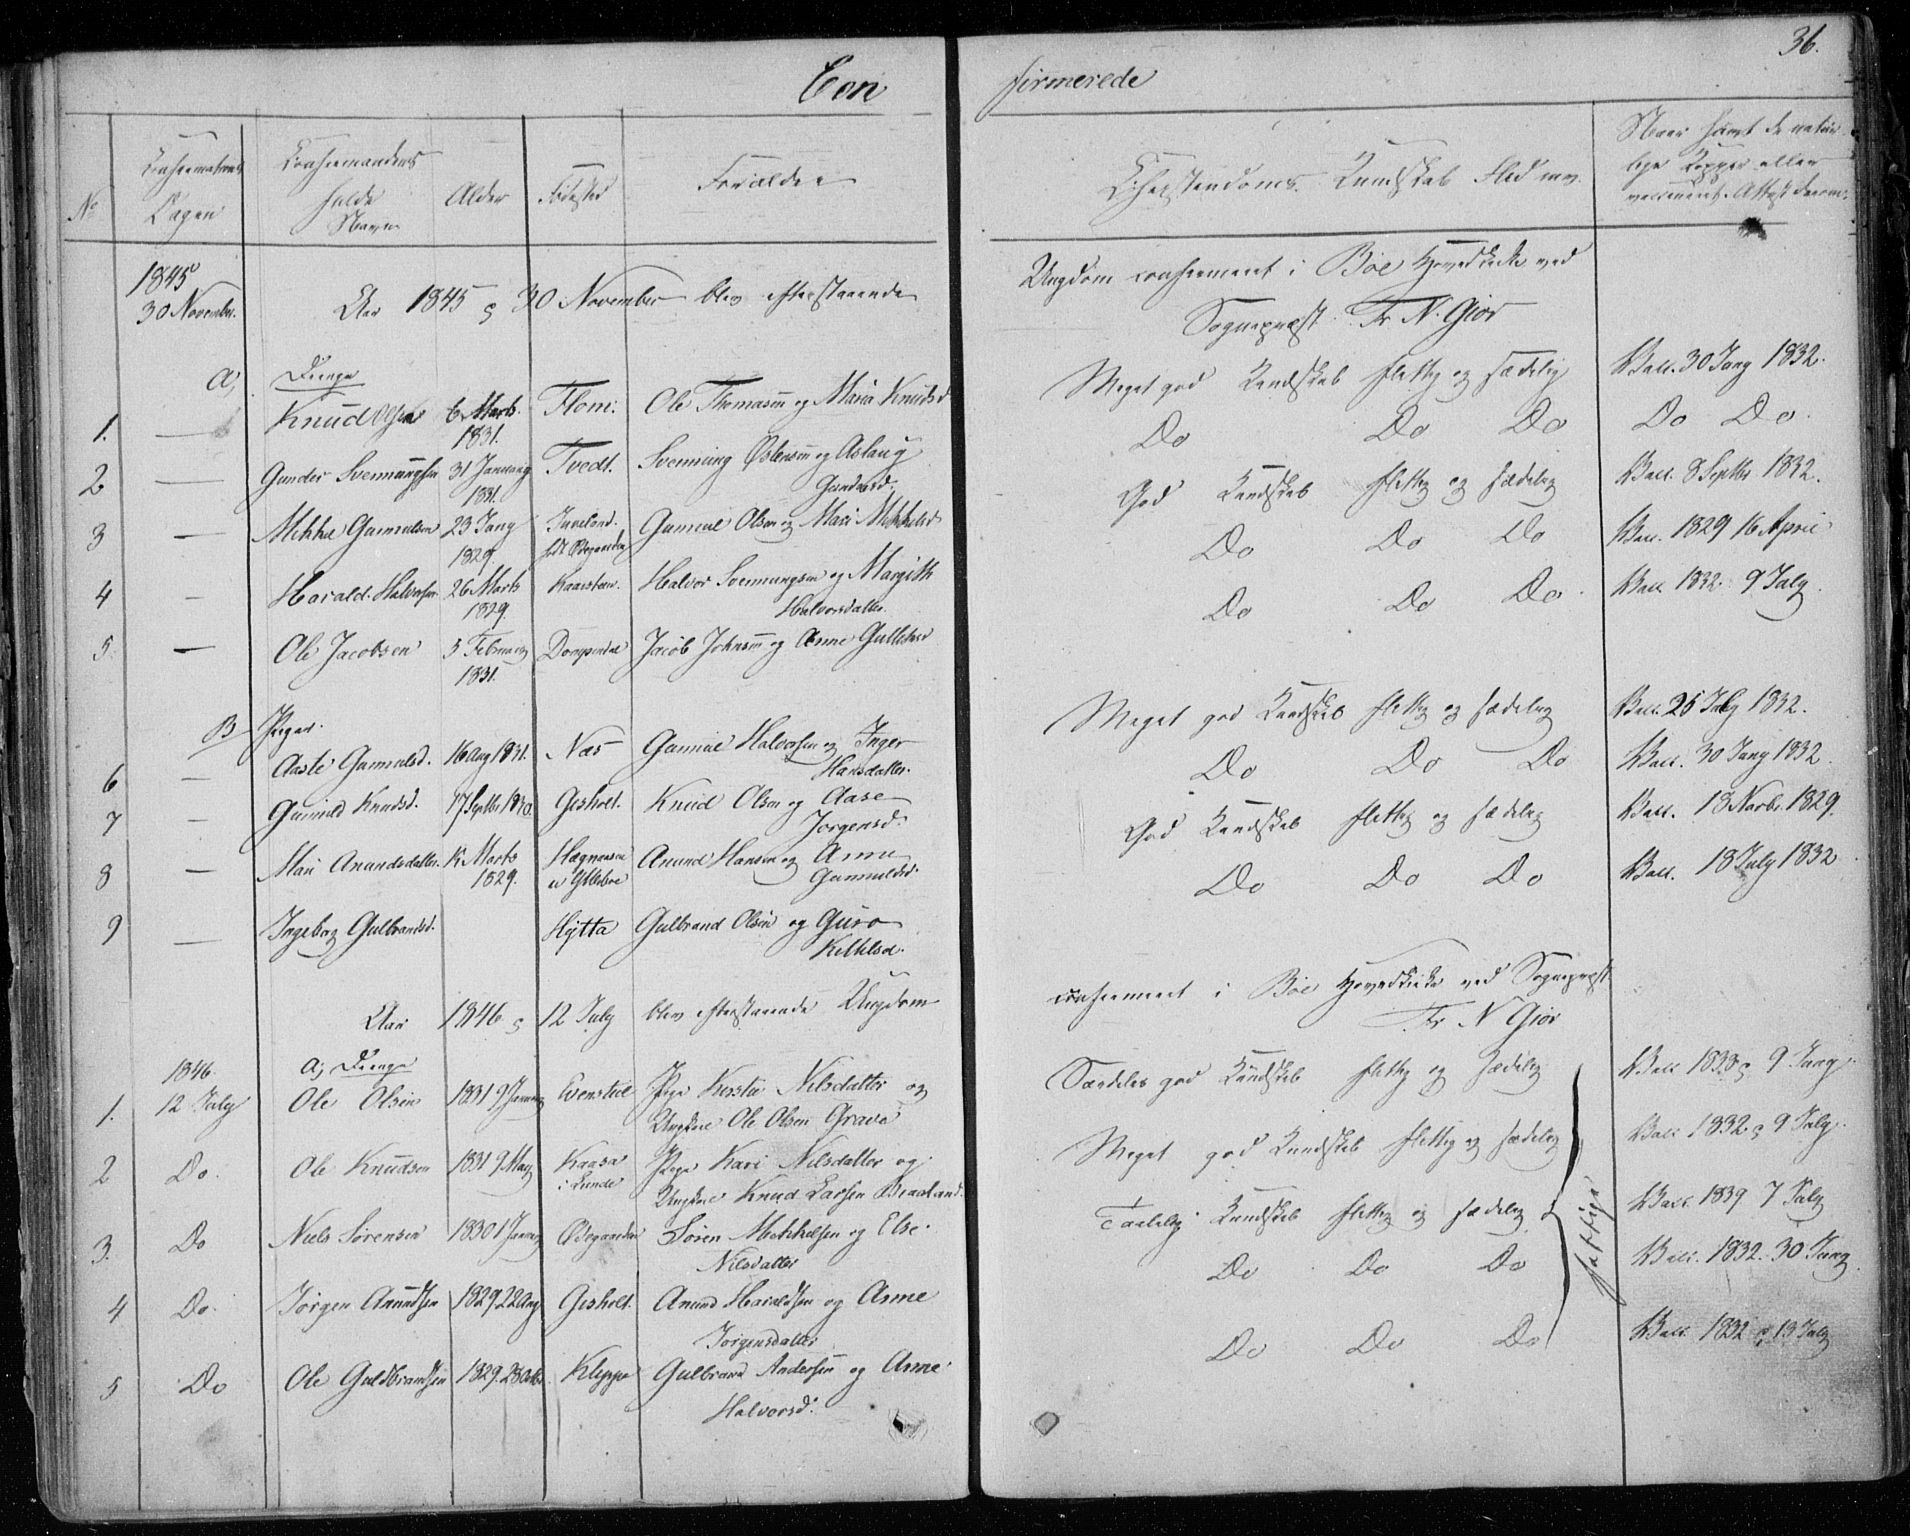 36.
Con firmerede
No
Confirmations Dagen
Confirmandens fulde Navn
Alder
Fødested
Forældre
Christendoms Kundskab Flid mv.
Naar havt de natur-
lige Kopper eller
vaccineret. Attest derom.
1845
30 November.
Aar 1845 d 30 November blev efterstaaende Ungdom confirmeret i Bøe Hovedkirke ved
Sognepræst Fr N. Giør
a, Drenge
1. — Knud Olsen 6 Marts 1831. Flom. Ole Thomassen og Maria Knudsd Meget god Kundskab flittig og sædelig Vacc. 30 Juny 1832.
2 — Gunder Svennungsen 31 January 1831. Tvedt. Svennung Østensen og Aslaug Gundersd. Do Do Do Do Do.
3 — Mikkel Gunnulsen 23 Juny 1829 Gunnul Olsen og Mari Mikkelsd God Kundskab flittig og sædelig Vacc. 8 Septbr 1832.
4 — Harald Halvorsen 26 Marts 1829. Halvor Svennungsen og Margith Halvorsdatter. Do Do Do Vacc. 1829 16 April
5. — Ole Jacobsen 5 February 1831. Jacob Johnsen og Anne Gulleksd Do Do Do. Vacc. 1832. 9 July.
B Piger.
6 — Aaste Gunnulsd. 16 Aug 1831. Næs Gunnul Halvorsen og Inger Hansdatter. Meget god Kundskab flittig og sædelig Vacc. 25 July 1832.
7 — Gunild Knudsd. 17 Septbr 1830. Gisholt. Knud Olsen og Aase Jørgensd. Do Do Do Vacc. 30 Juny 1832.
8 — Mari Anundsdatter. Marts 1829. Anund Hansen og Anne Gunnulsd. God Kundskab flittig og sædelig Vacc. 13 Novbr. 1829.
9 — Ingeborg Gulbrandsd. Hytta Gulbrand Olsen og Guro Kittilsd. Do Do Do Vacc. 18 July 1832
Aar 1846 d 12 July blev efterstaaende Ungdom confirmeret i Bøe Hovedkirke ved Sognepræst
Fr N Giør
1846. a, Drenge
1. 12 July Ole Olsen 1831 9 January Evensted Pige Kirstie Nilsdatter og Ungkarl Ole Olsen Grave Særdeles god Kundskab flittig og sædelig Vacc 1833 d 9 Juny.
2 Do. Ole Knudsen 1831 9 May Kaasa i Lunde Pige Kari Nilsdatter og Ungkarl Knud Larsen Meget god Kundskab flittig og sædelig Vacc 1832 d 9 July.
3. Do Niels Sørensen 1830 1 January Ødegaarden Søren Mikkelsen og Else Nilsdatter Taalelig Kundskab flittig og sædelig Vacc. 1839 7 July
4 Do. Jørgen Anundsen 1829 22 Aug Gisholt. Anund Haraldsen og Anne Jørgensdatter Do Do Do Vacc. 1832. 30 Juny.
5 Do Ole Guldbrandsen 1829. 23 Octbr Kleppe Gulbrand Andersen og Anne Halvorsd. Do Do Do Vacc. 1832 d 13 July
fattige